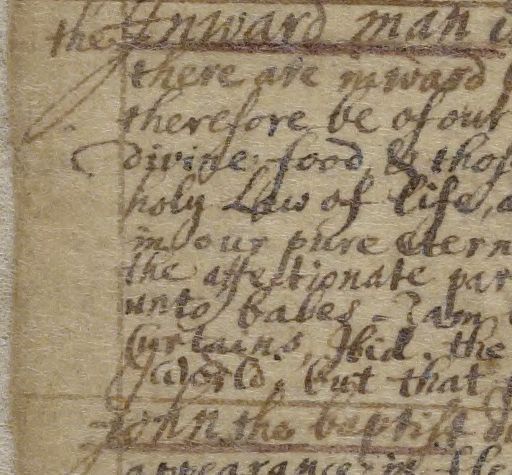 the Inward man i
there are inward
therefore be of our
divine food, & thos
holy Law of life, a
in our pure etern
the affectionate par
unto babes - I am
Curtains, Ibid. the
World, but that
John the baptist
appearance in the